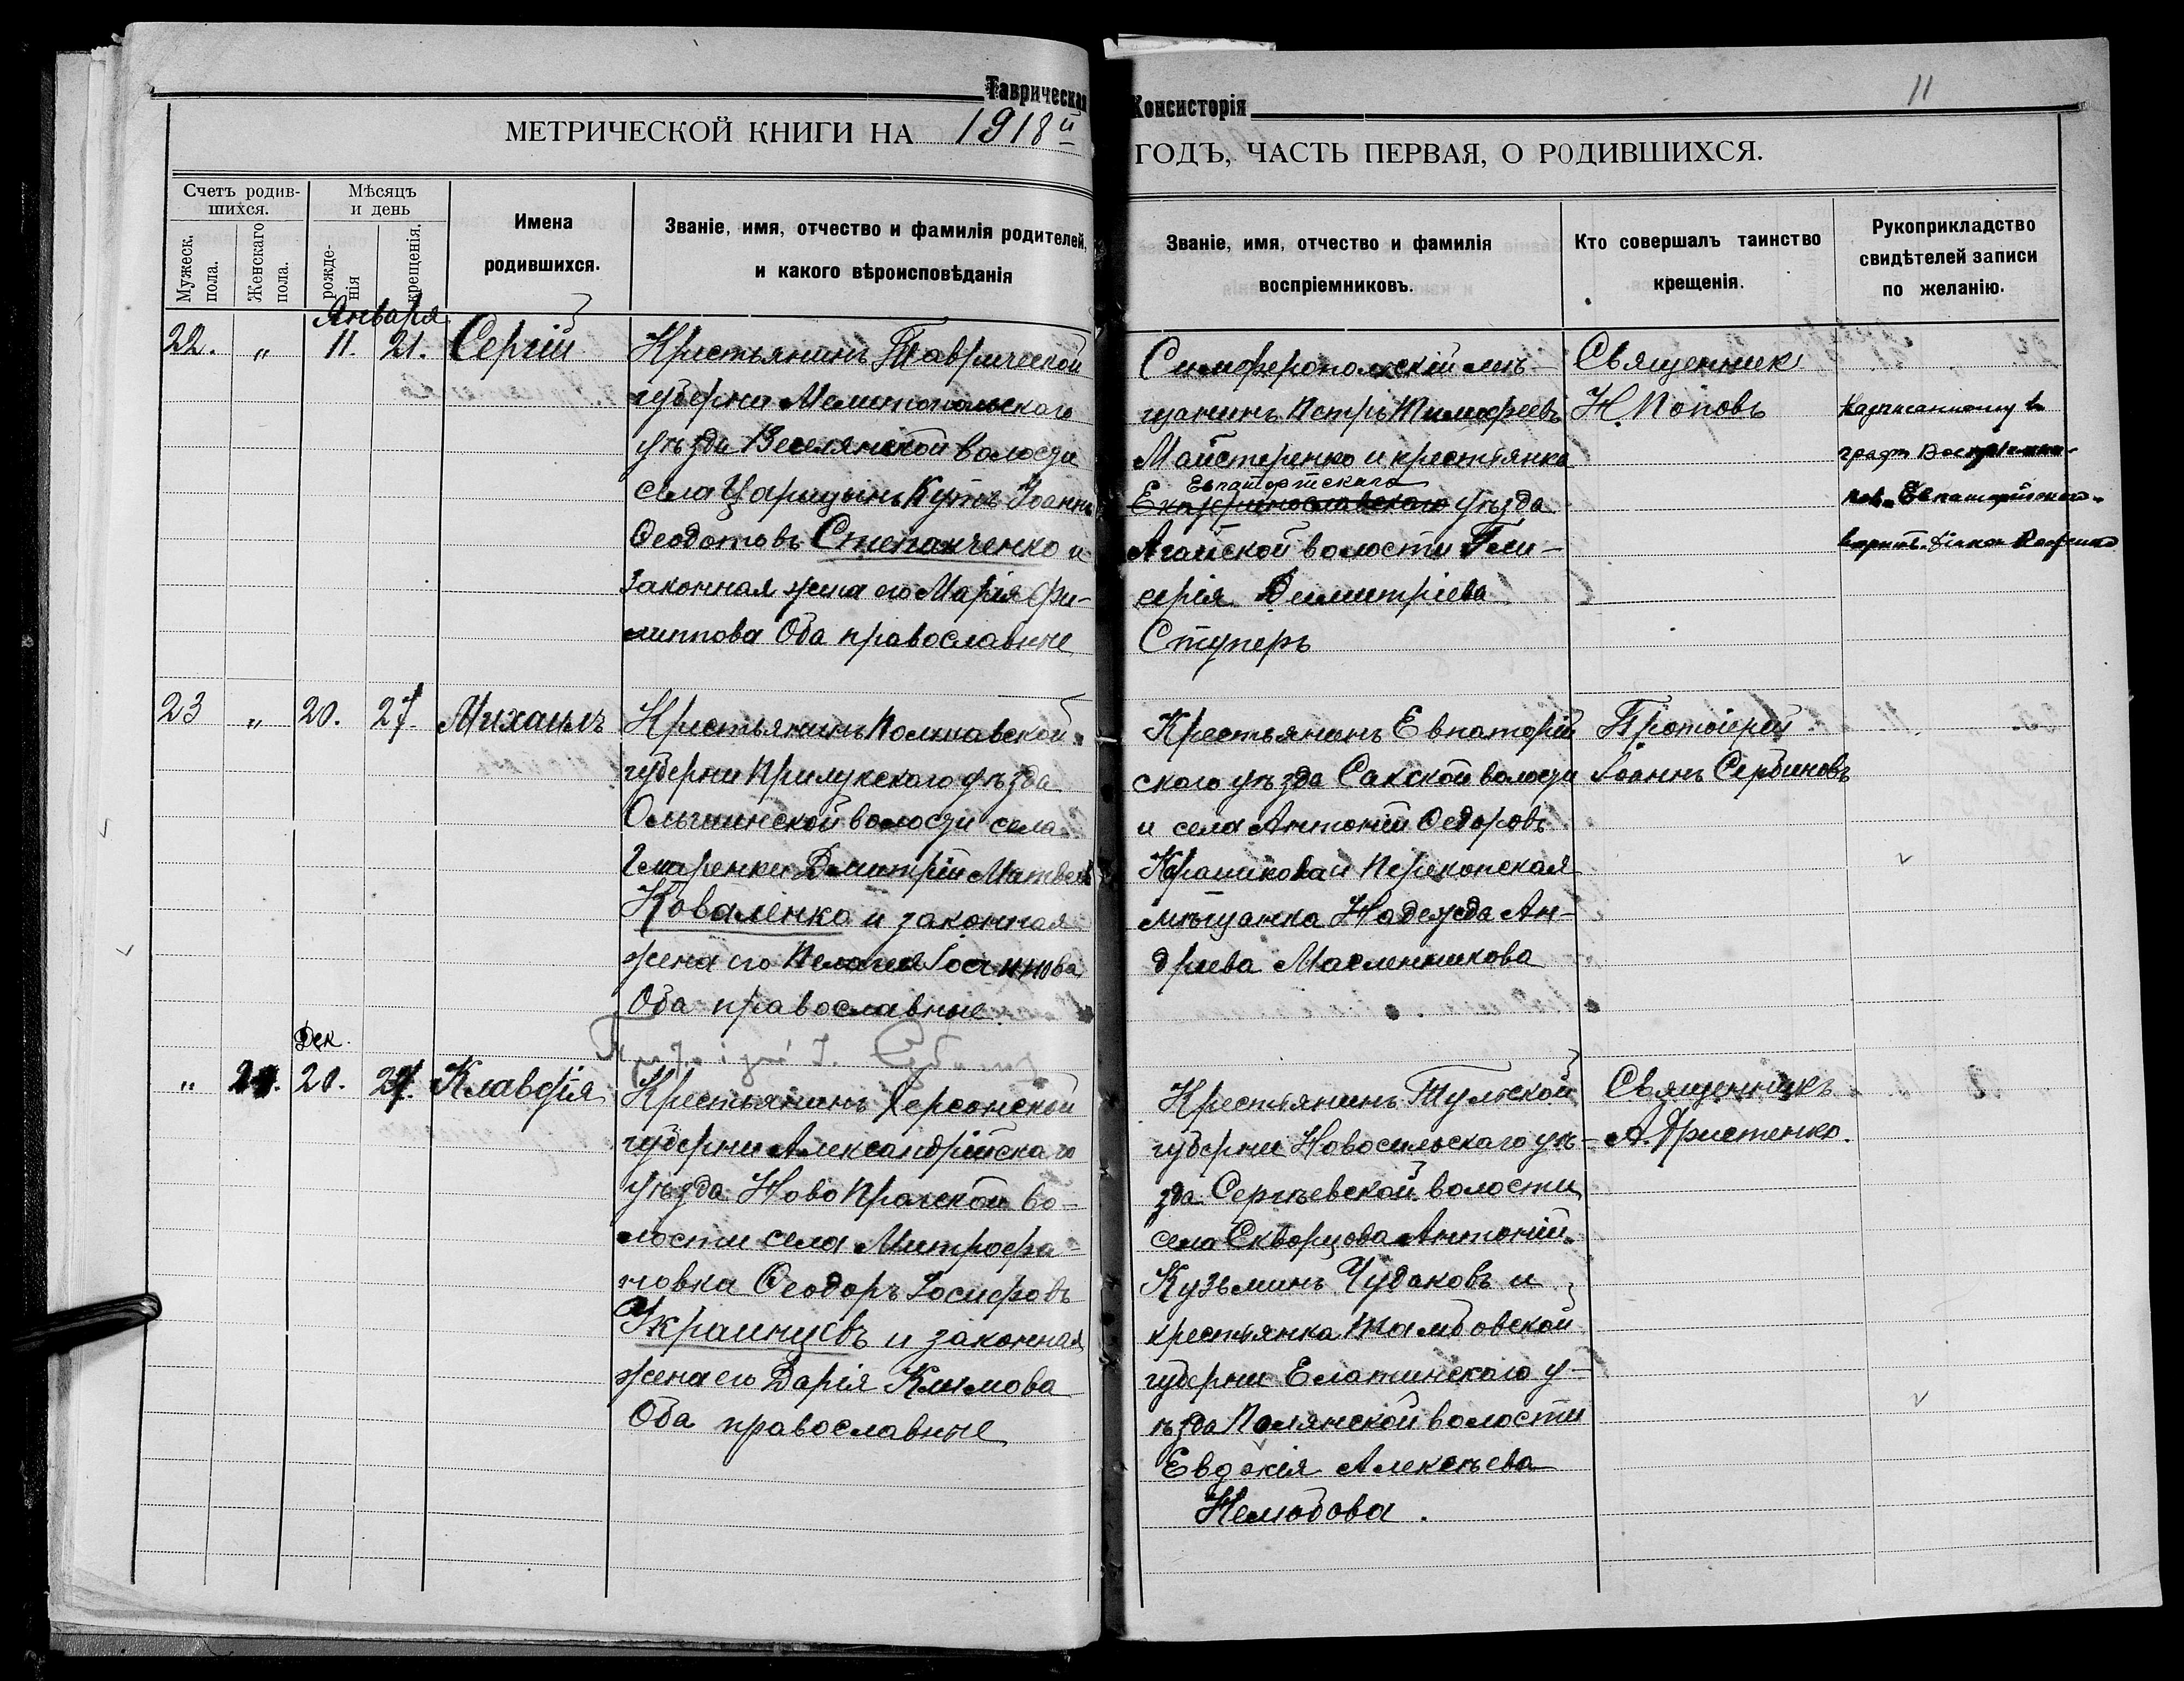 Таврическая Консисторія
11
МЕТРИЧЕСКОЙ КНИГИ НА 1918й ГОДЪ, ЧАСТЬ ПЕРВАЯ, О РОДИВШИХСЯ.
Счетъ родив-
шихся.
Мужеск.
пола.
Женскаго
пола.
Мѣсяцъ
и день
рожде-
нія
крещенія.
Имена
родившихся.
Званіе, имя, отчество и фамилія родителей,
и какого вѣроисповѣданія
Званіе, имя, отчество и фамилія
воспріемниковъ.
Кто совершалъ таинство
крещенія.
Рукоприкладство
свидѣтелей записи
по желанію.
Января
22. " 11. 21. Сергій
Крестьянинъ Таврической
губерни Мелитопольскаго
уѣзда Веселянской волости
села Царицынъ Кутъ Іоаннъ
Ѳеодотовъ Степанченко и
законная жена его Марія Фи-
липпова Оба православные
Симферопольскій мѣ-
щанинъ Петръ Тимофеевъ
Майстеренко и крестьянка
Евпаторійскаго
Екатеринославскаго уѣзда
Агайской волости Гли-
керія Димитріева
Ступеръ
Священник
Н. Поповъ
Надписанному в
графѣ Воспріемни-
ков "Евпаторійскаго"
вѣрить.
23 " 20. 27. Михаилъ
Крестьянинъ Полтавской
губерни Прилукского уѣзда
Ольшинской волости села
Гмаренки Димитрій Матвеев
Коваленко и законная
жена его Пелагея Іоаннова
Оба православные.
Крестьянинъ Евпаторій
ского уѣзда Сакской волости
и села Антоній Ѳедоровъ
и Перекопская
мѣщанка Надежда Ан-
дреева Масленникова
Протоіерей
Іоаннъ Сербиновъ
Дек.
" 20. 27. Клавдія
Крестьянинъ Херсонской
губерни Александрійскаго
уѣзда Ново Пражской во-
лости села Митрофа-
новка Ѳеодоръ Іосифовъ
Украинцевъ и законная
жена его Дарія Климова
Оба православные
Крестьянинъ Тульской
губерни Новосильскаго уѣ-
зда Сергѣевской волости
села Скворцова Антоній
Кузьминъ Чудаковъ и
крестьянка Тамбовской
губерни Елатинскаго у-
ѣзда Полянской волости
Евдокія Алексѣева
Нелюбова.
Священникъ
А. Христенко.